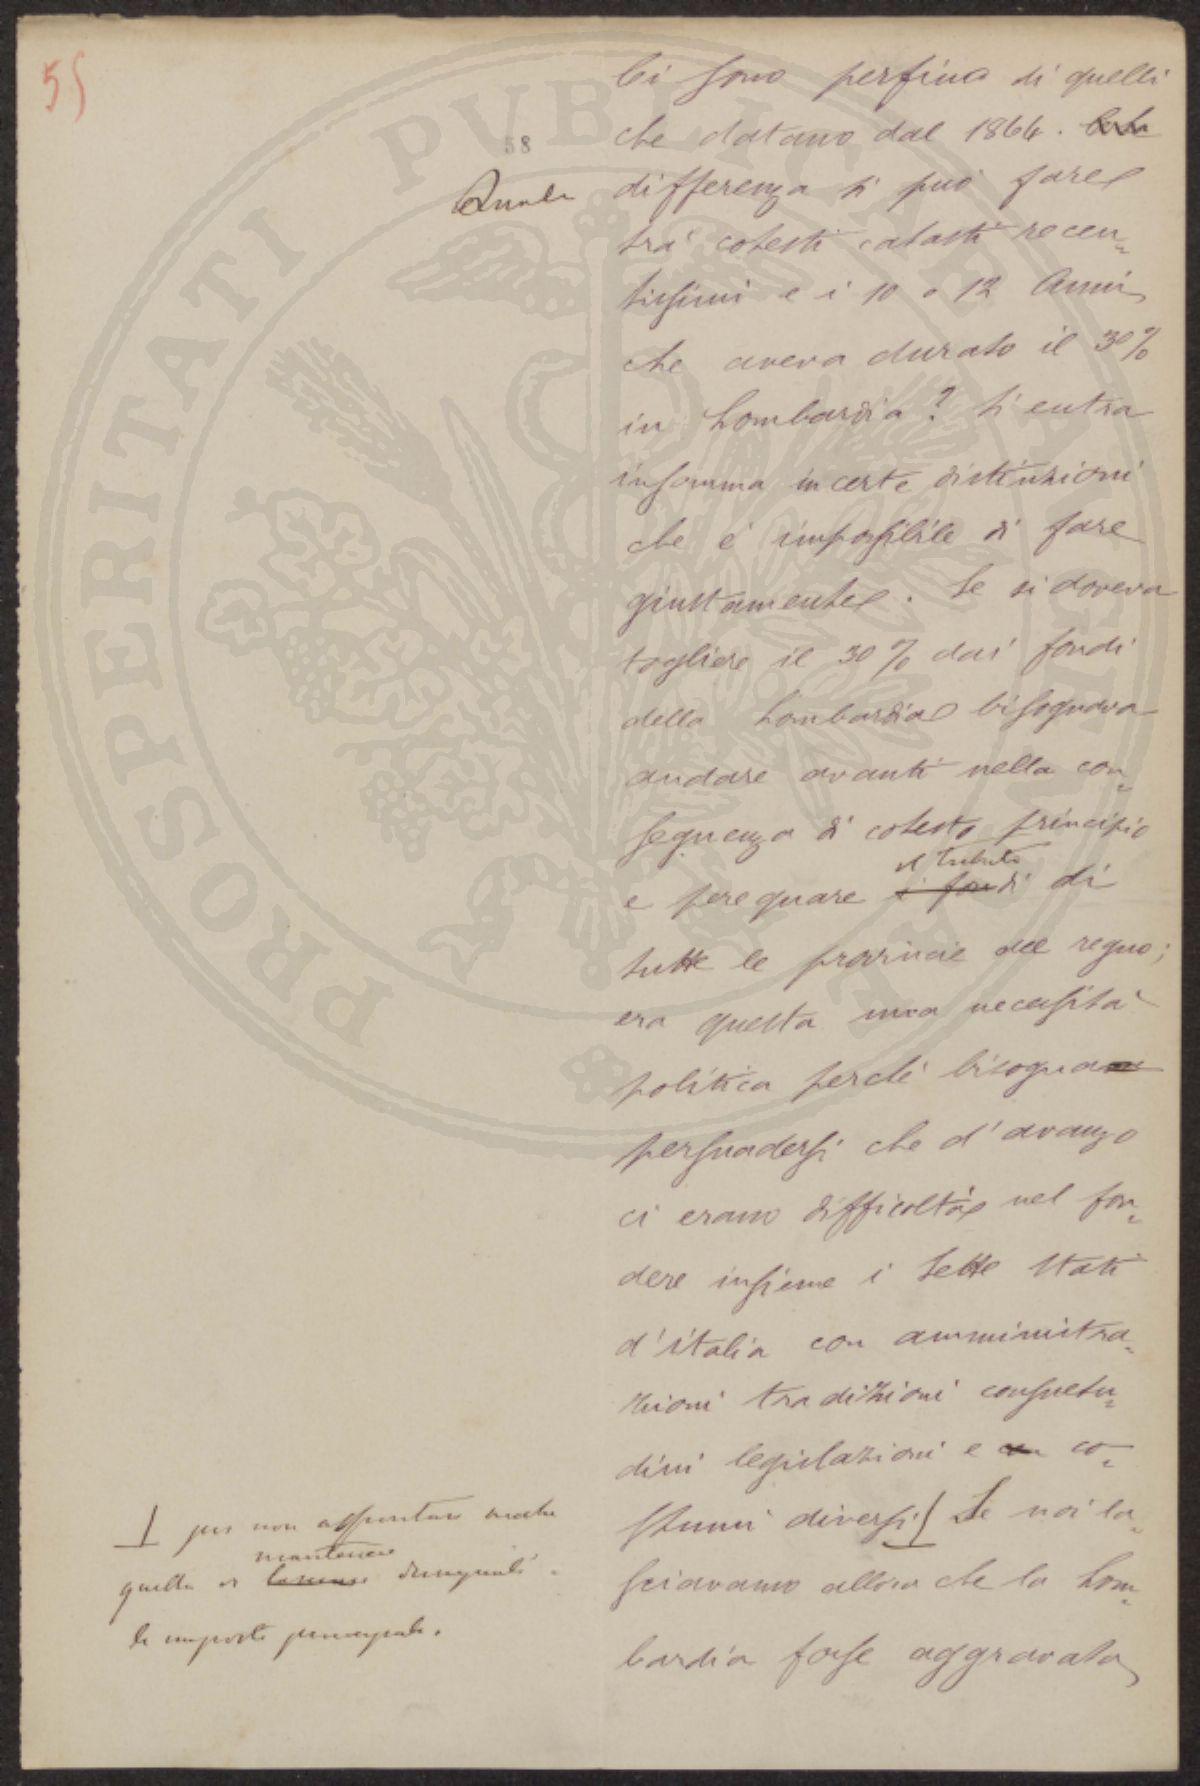 55
58
Ci sono perfino di quelli
che datano dal 1864.
Quale
differenza si può fare
tra cotesti catasti recen=
tissimi e i 10 o 12 Anni
che aveva durato il 30%
in Lombardia? Si entra
insomma in certe distinzioni
che é impossibile di fare
giustamente. Se si doveva
togliere il 30% dai fondi
della Lombardia bisognava
andare avanti nella con=
seguenza di cotesto principio
il tributo
e perequare i fondi di
tutte le provincie del regno;
era questa una necessità
politica perché bisogna
persuadersi che d'avanzo
ci erano difficoltà nel fon=
dere insieme i sette Stati
d'italia con amministra=
zioni tradizioni consuetu=
dini legislazioni e co=
stumi diversi Se noi la=
sciavamo allora che la Lom=
bardia fosse aggravata
per non aggiuntare anche
mantenere
quella di lasciare disuguali
le imposte principali.
PROSPERITATI PUBLICAE AUGENDAE